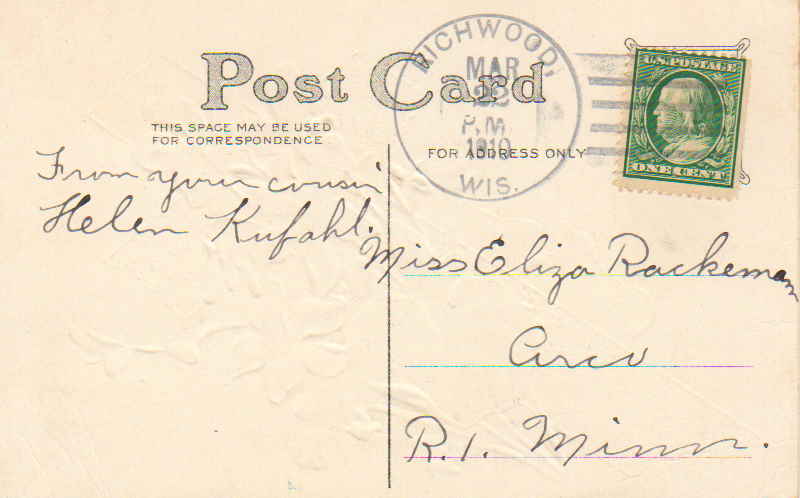 Post Card
THIS SPACE MAY BE USED
FOR CORRESPONDENCE
FOR ADDRESS ONLY
RICHWOOD,
MAR
P.M.
1910
WIS.
U.S. POSTAGE
ONE CENT
From your cousin
Helen Kufahl.
Miss Eliza Rackemann
Arco
R.1. Minn.